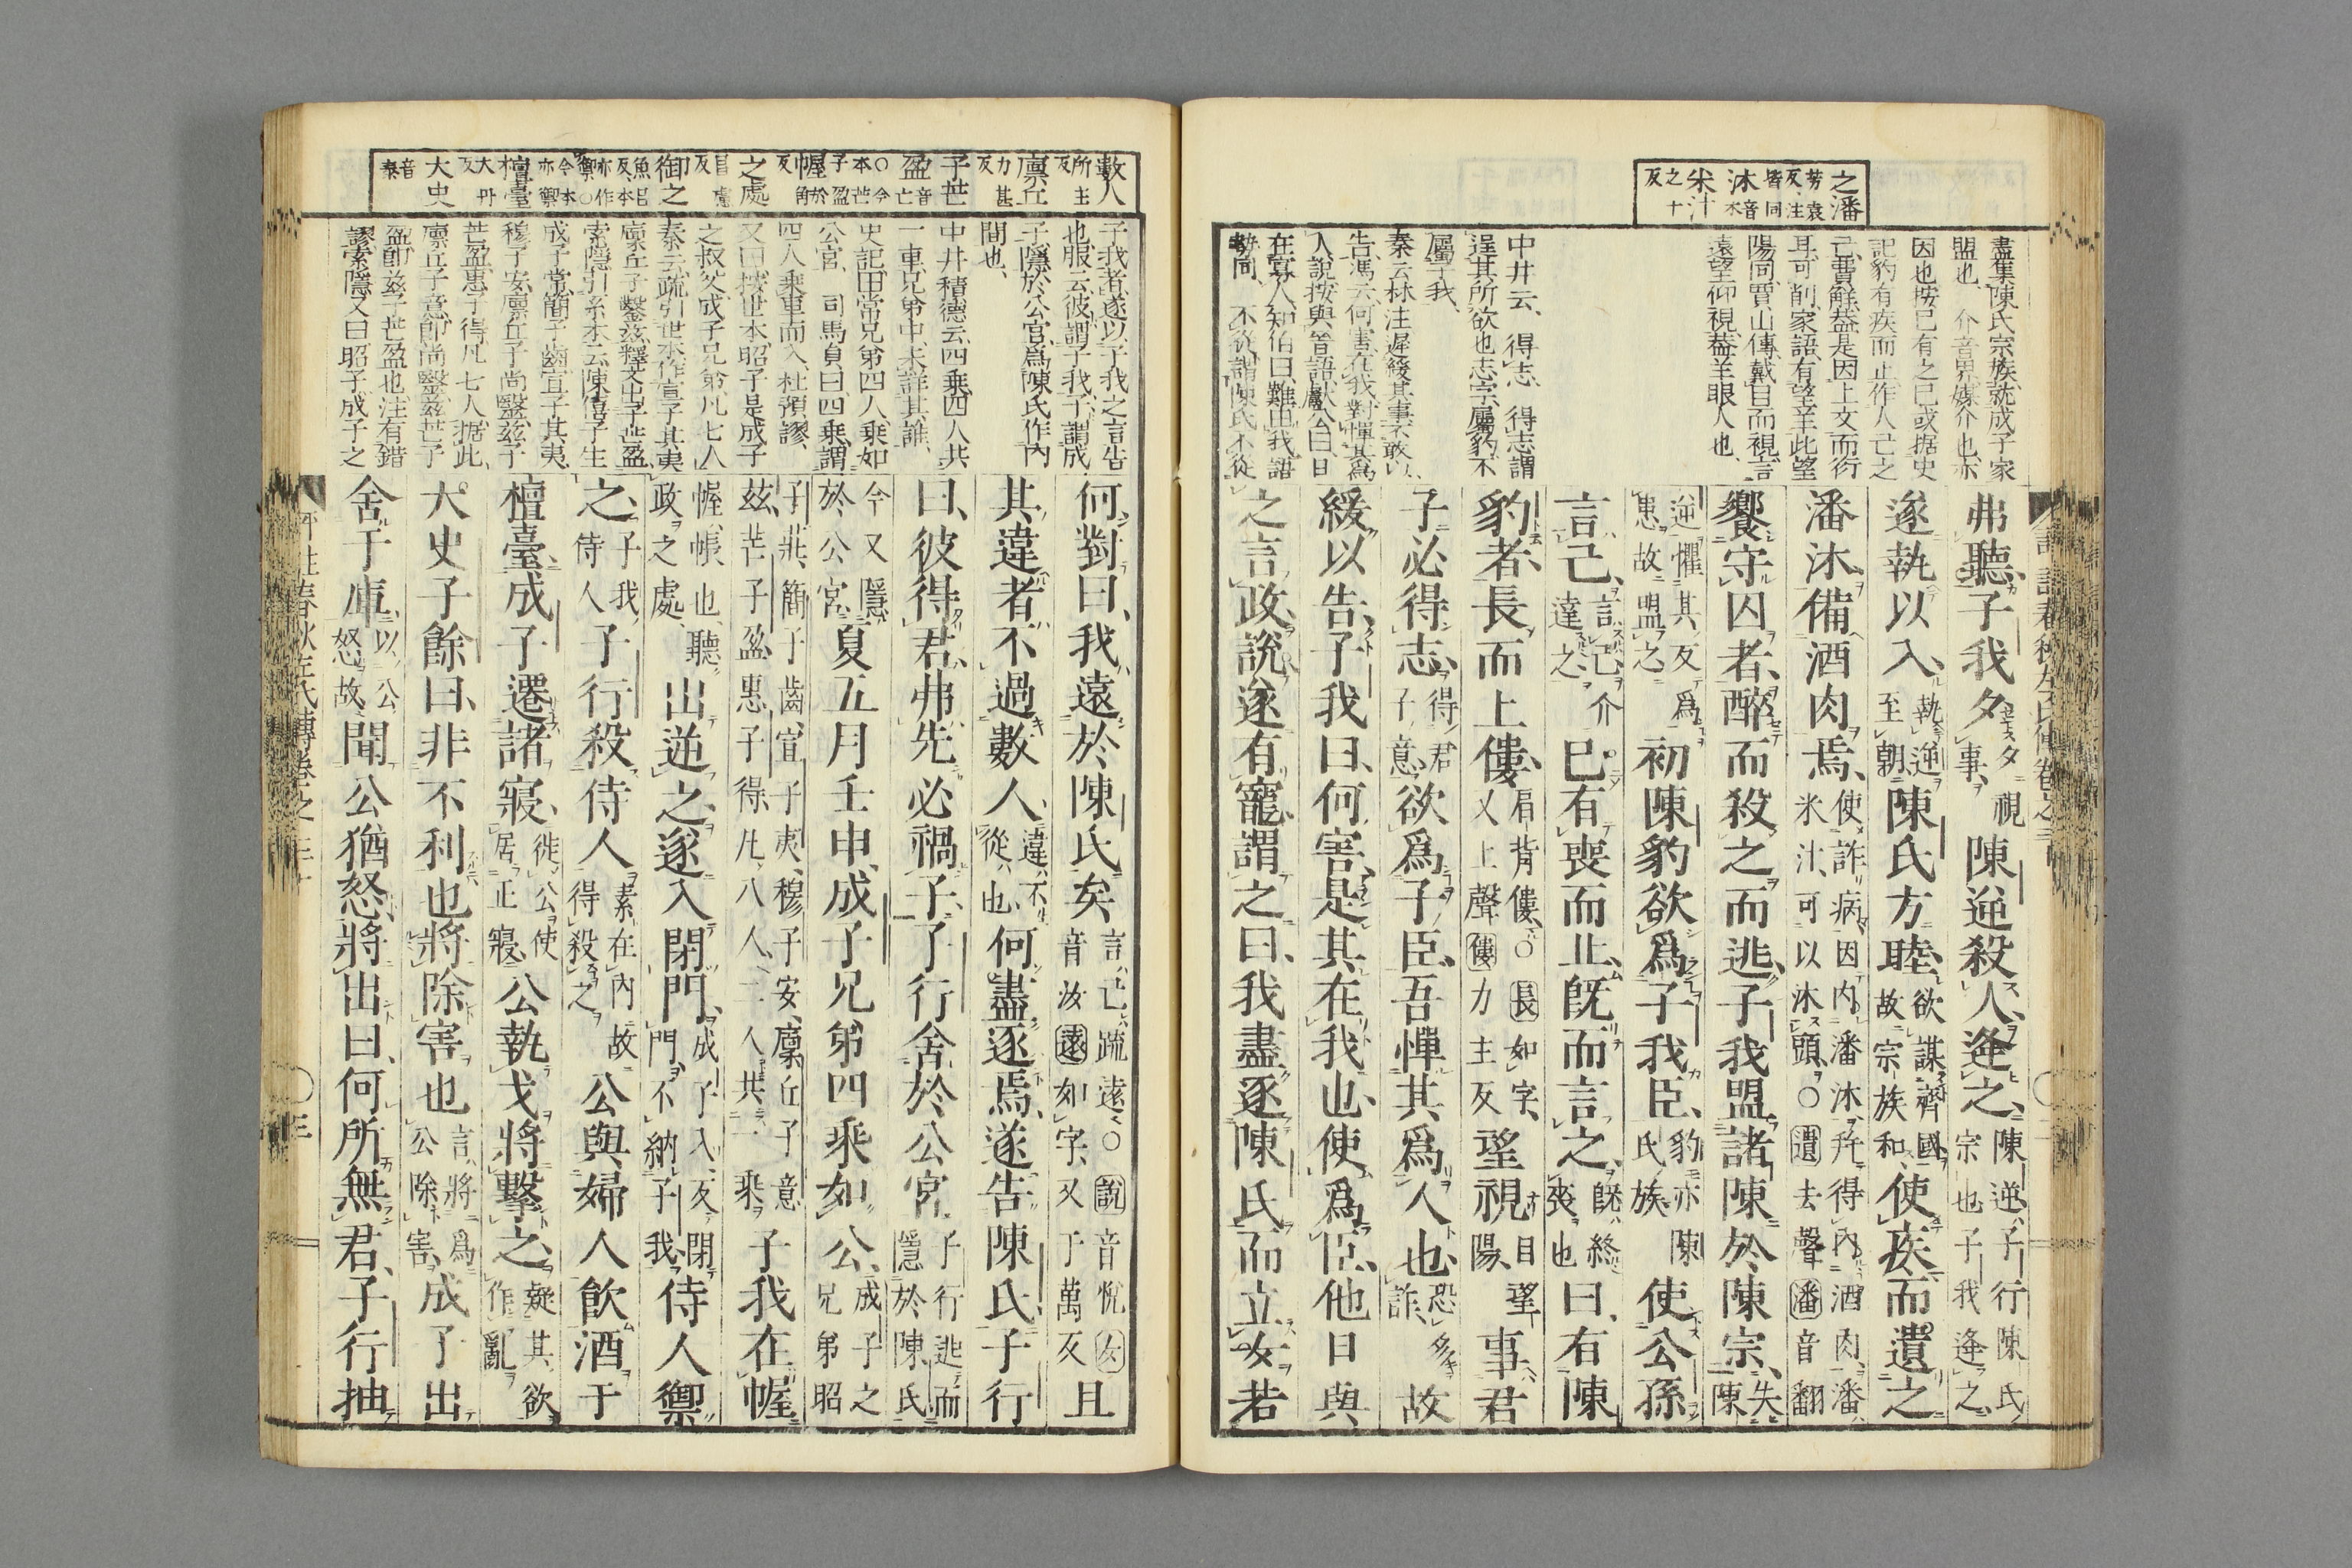 之潘
芳袁反注皆同
沐
音木
米汁
之十反
盡集陳氏宗族就成子家
盟也 介音界媒介也亦
因也按已有之已或据史
記豹有疾而止作人已之
已費解葢是因上文而衍
耳可削家語有望羊此望
陽同賈山傳戴目而視言
遠望仰視葢羊眼人也
中井云得志得志謂
逞其所欲也志字屬豹不
屬子我
秦云林注遲緩其事不敢以
告馮云何害在我對憚其爲
人說按與晉語獻公曰日
在寡人知伯曰難由我語
勢同 不從謂陳氏不從
弗聽子我夕夕視事陳逆殺人逢之陳逆子行陳氏宗也子我逢之
遂執以入執逆至朝陳氏方睦欲謀齊國故宗族和使疾而遺之
潘沐備酒肉焉使詐病因内潘沐幷得內酒肉潘米汁可以沐頭○遺去聲潘音翻
饗守囚者醉而殺之而逃子我盟諸陳於陳宗失陳
逆懼其反爲患故盟之初陳豹欲爲子我臣豹亦陳氏族使公孫
言己言己介達之已有喪而止旣而言之旣終喪也曰有陳
豹者長而上僂肩背僂○長如字又上聲僂力主反望視目望陽事君
子必得志得君子意欲爲子臣吾憚其爲人也恐多詐故
緩以告子我曰何害是其在我也使爲臣他日與
之言政說遂有寵謂之曰我盡逐陳氏而立女若
數人
所主反
廪丘
力甚反
子芒
盈
音亡○今本芒子盈
幄
於角反
之處
昌慮反
御之
魚呂反本亦作禦○今本亦禦
檀臺
大丹反
大史
音泰
子我者遂以子我之言告
也服云彼謂子我子謂成
子隱於公宮爲陳氏作內
間也
中井積德云四乘四人共
一車兄弟中未詳其誰
史記田常兄弟四人乘如
公宮 司馬貞曰四乘謂
四人乘車而入杜預謬
又曰按世本昭子是成子
之叔父成子兄弟凡七人
秦云疏引世本作宣子其夷
廪丘子鑿玆釋文出子芒盈
索隱引系本云陳僖子生
成子常簡子齒宣子其夷
穆子安廪丘子尚鑿玆子
芒盈惠子得凡七人据此
廪丘子意卽尚鑿玆芒子
盈卽玆子芒盈也注有錯
謬索隱又曰昭子成子之
何對曰我遠於陳氏矣言已疏遠○說音悅女音汝遠如字又于萬反且
其違者不過數人違不從也何盡逐焉遂告陳氏子行
曰彼得君弗先必禍子子行舍於公宮子行逃而隱於陳氏
今又隱於公宮夏五月壬申成子兄弟四乘如公成子之兄弟昭
子莊簡子齒宣子夷穆子安廪丘子意玆芒子盈惠子得凡八人二人共一乘子我在幄
幄帳也聽政之處出逆之遂入閉門成子入反閉門不納子我侍人禦
之子我侍人子行殺侍人素在內故得殺之公與婦人飮酒于
檀臺成子遷諸寢徙公使居正寢公執戈將擊之疑其欲作亂
大史子餘曰非不利也將除害也言將爲公除害成子出
舍于庫以公怒故聞公猶怒將出曰何所無君子行抽